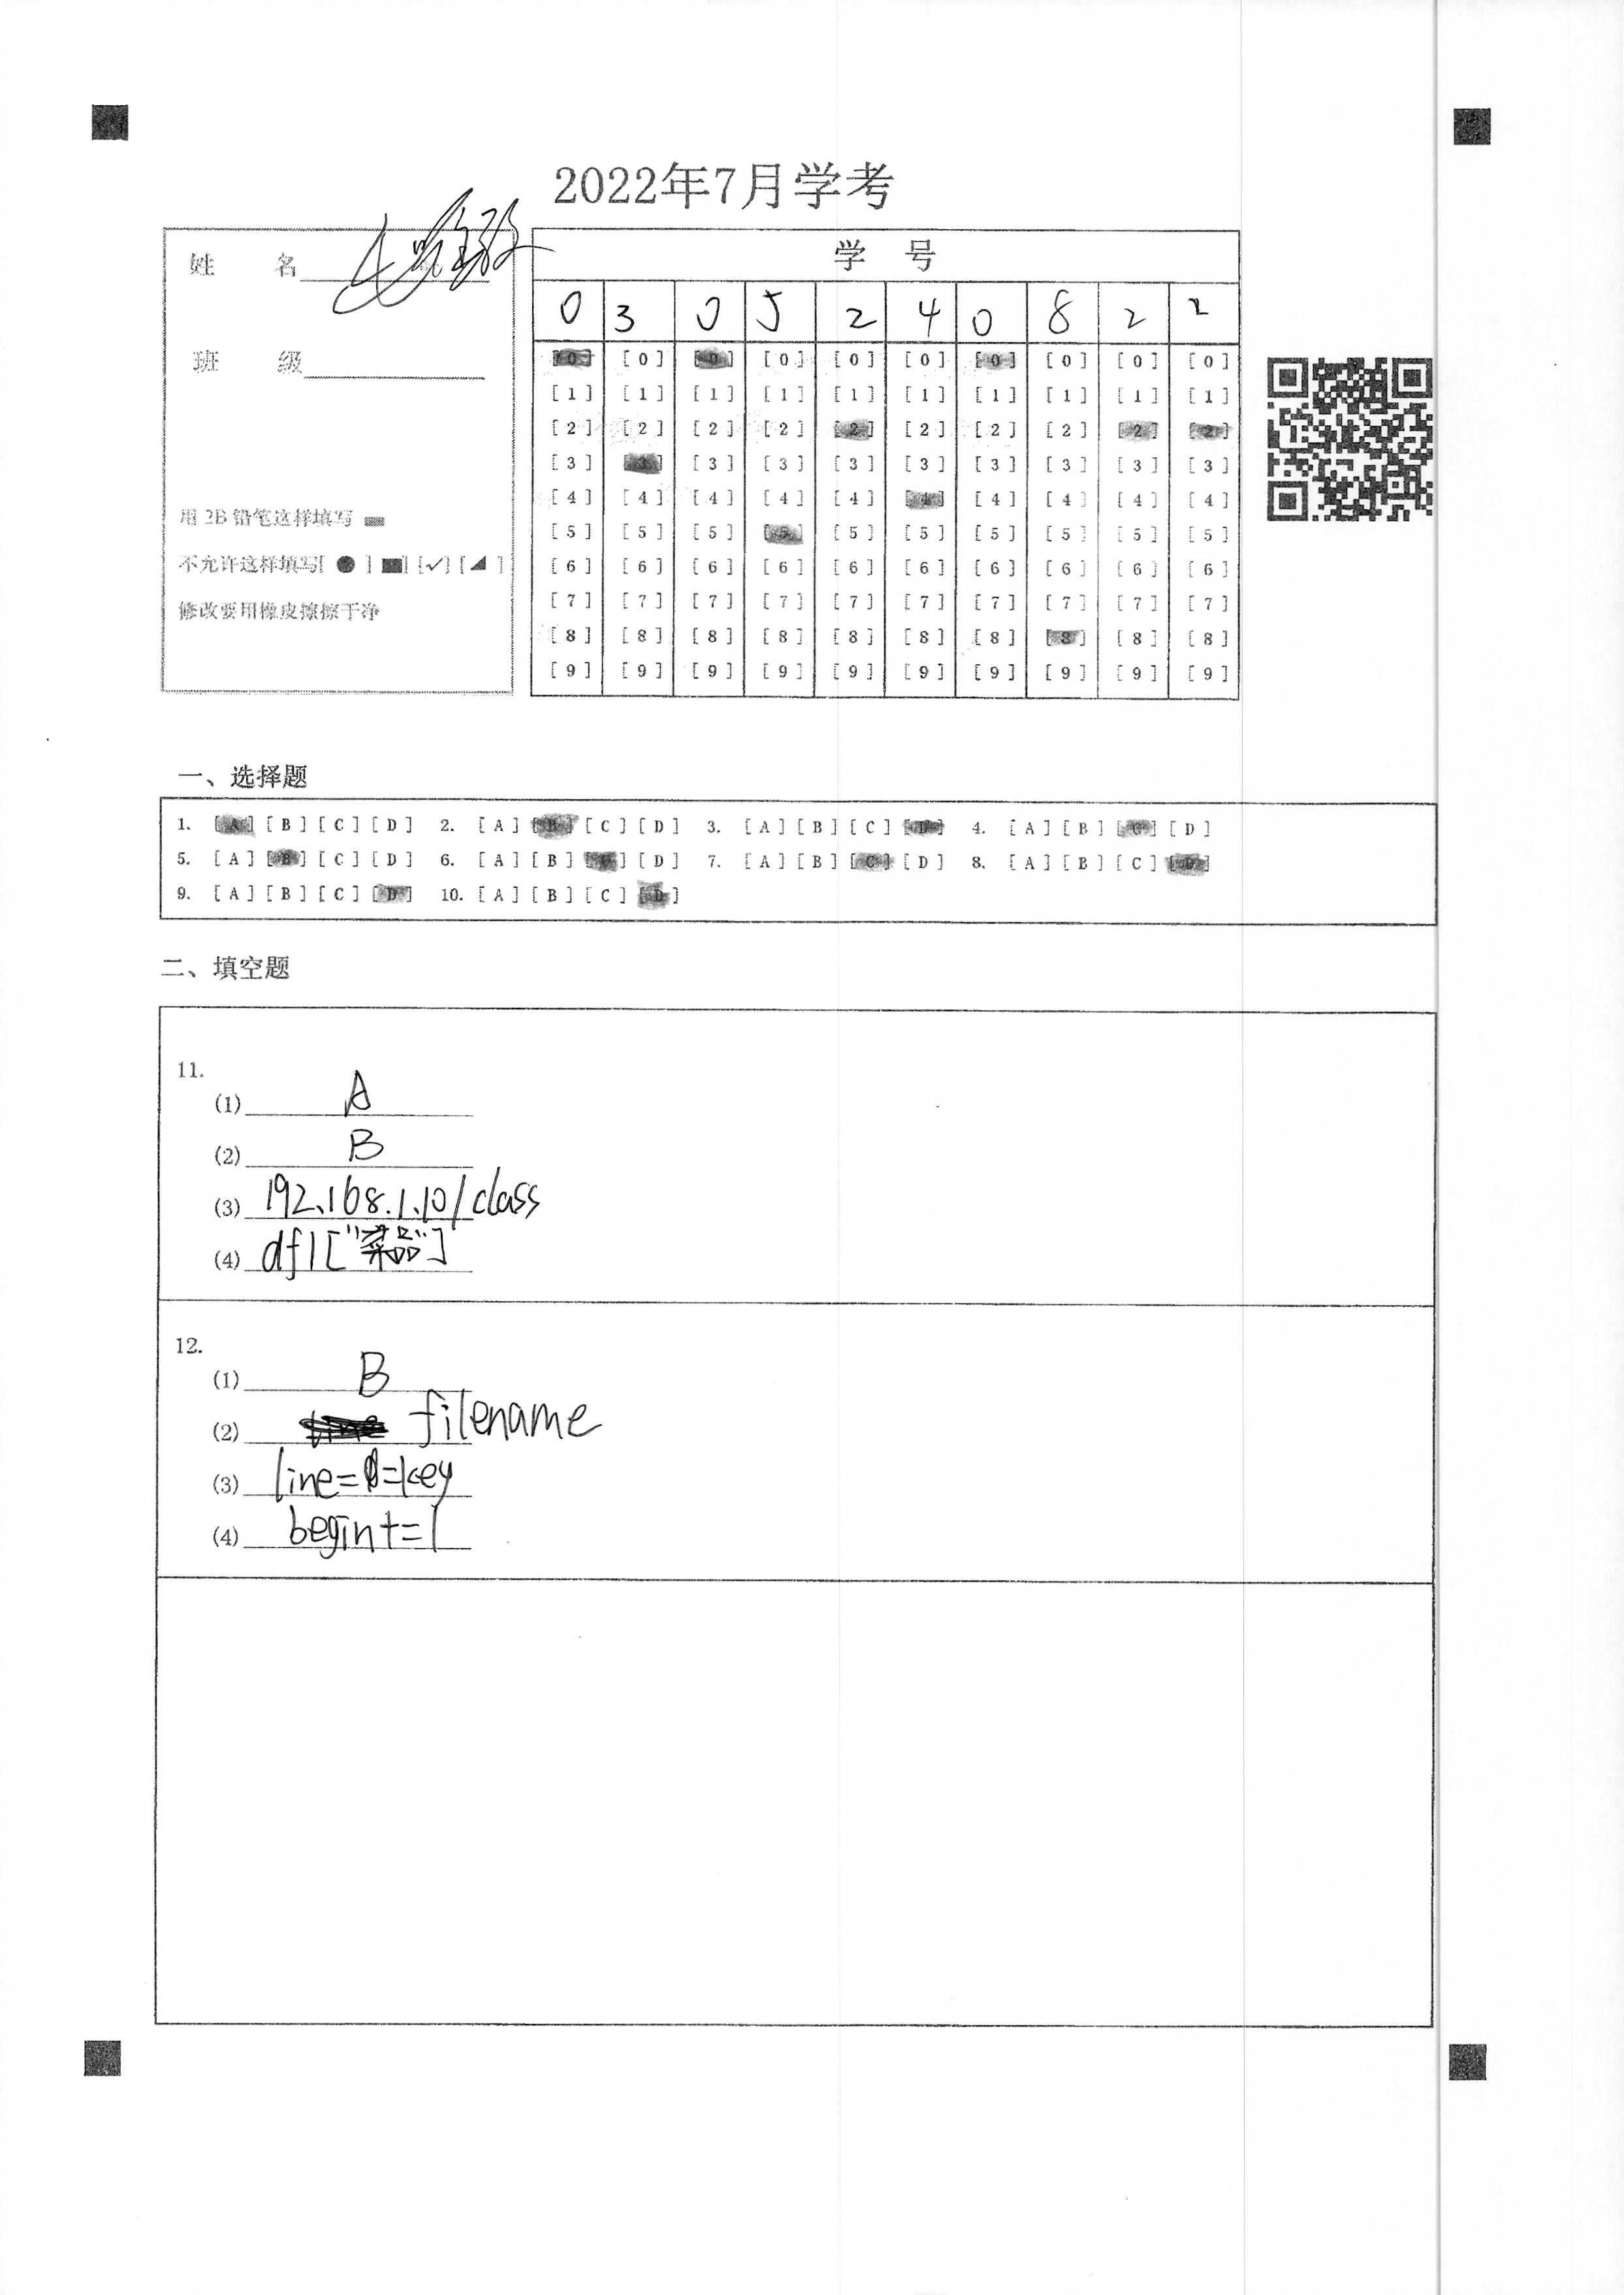 2022年7月学考
姓 名
班 级
用 2B 铅笔这样填写
不允许这样填写[ ● ] ■] [✓] [◢ ]
修改要用橡皮擦擦干净
学 号
0 3 0 5 2 4 0 8 2 2
[0] [0] [0] [0] [0] [0] [0] [0] [0] [0]
[1] [1] [1] [1] [1] [1] [1] [1] [1] [1]
[2] [2] [2] [2] [2] [2] [2] [2] [2] [2]
[3] [3] [3] [3] [3] [3] [3] [3] [3] [3]
[4] [4] [4] [4] [4] [4] [4] [4] [4] [4]
[5] [5] [5] [5] [5] [5] [5] [5] [5] [5]
[6] [6] [6] [6] [6] [6] [6] [6] [6] [6]
[7] [7] [7] [7] [7] [7] [7] [7] [7] [7]
[8] [8] [8] [8] [8] [8] [8] [8] [8] [8]
[9] [9] [9] [9] [9] [9] [9] [9] [9] [9]
一、选择题
1. [A] [B] [C] [D] 2. [A] [B] [C] [D] 3. [A] [B] [C] [D] 4. [A] [B] [C] [D]
5. [A] [B] [C] [D] 6. [A] [B] [C] [D] 7. [A] [B] [C] [D] 8. [A] [B] [C] [D]
9. [A] [B] [C] [D] 10. [A] [B] [C] [D]
二、填空题
11.
(1) A
(2) B
(3) 192.168.1.10/class
(4) df1["菜品"]
12.
(1) B
(2) filename
(3) line==key
(4) begin+=1